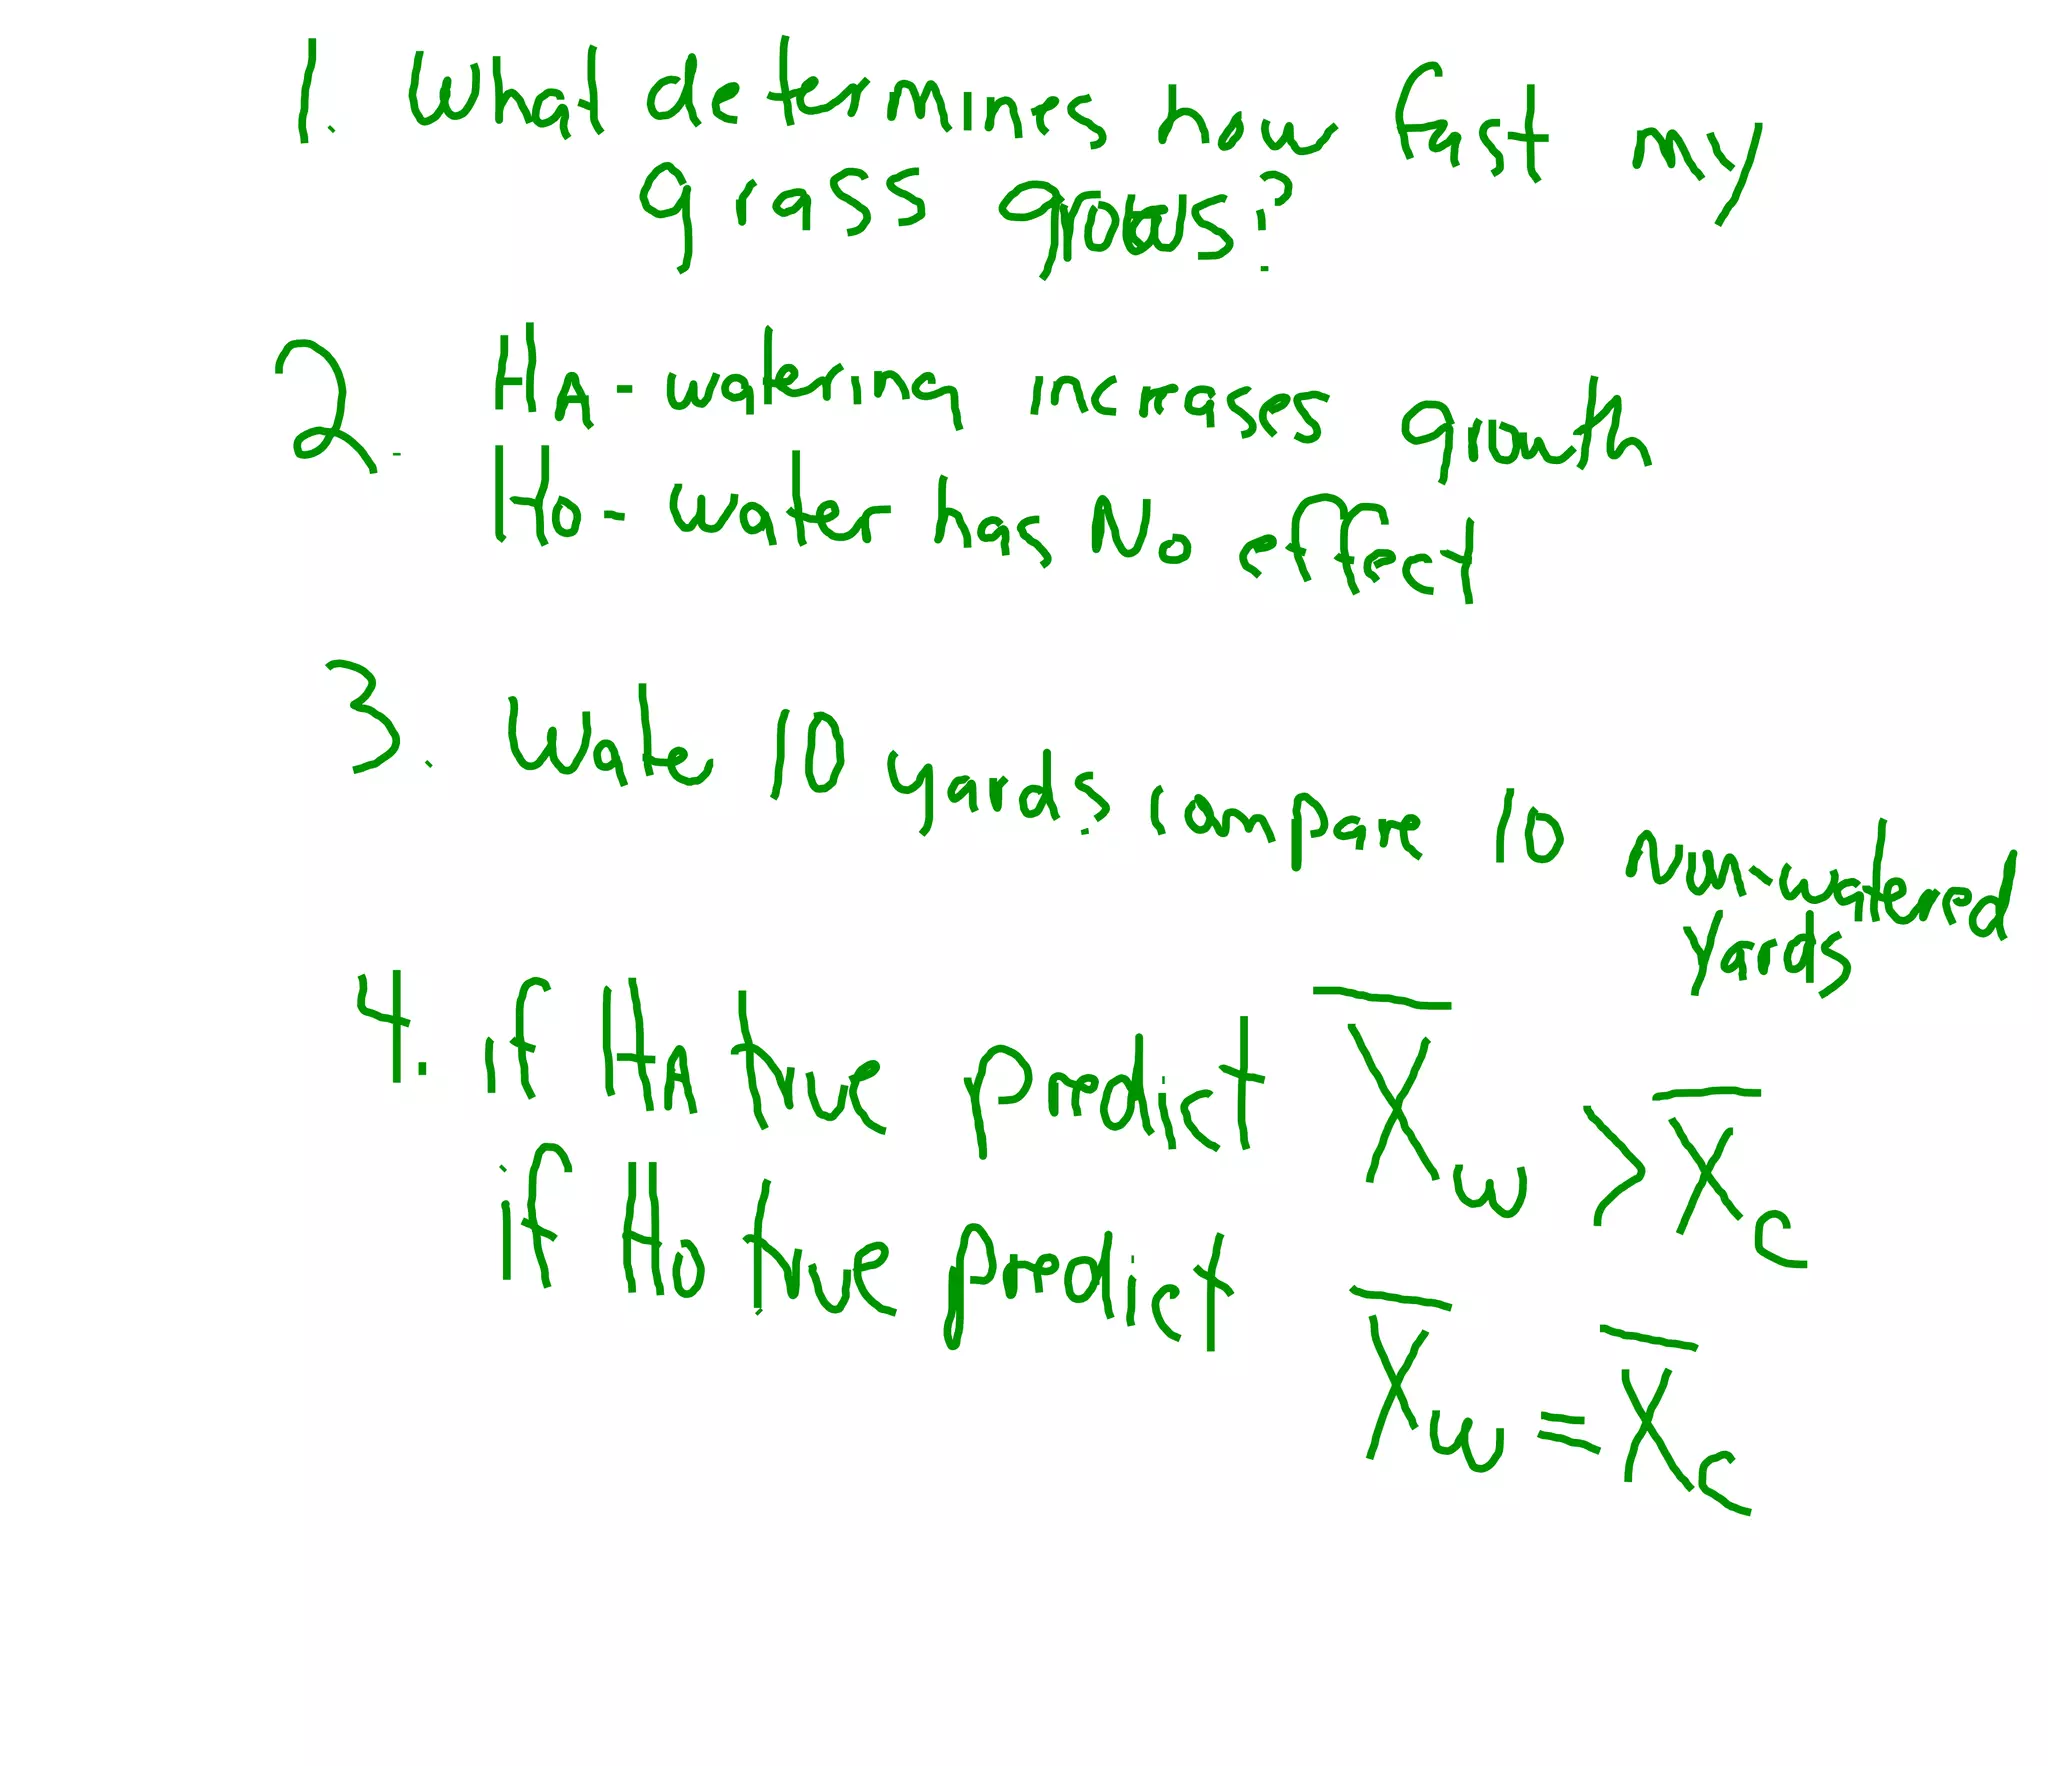 1. What determines how fast my
grass grows?
2. HA - watering increases growth
Ho - water has No effect
3. Water 10 yards. compare 10 non-watered
Yards
4. if HA true predict X̅w > X̅c
if Ho true predict
X̅w = X̅c